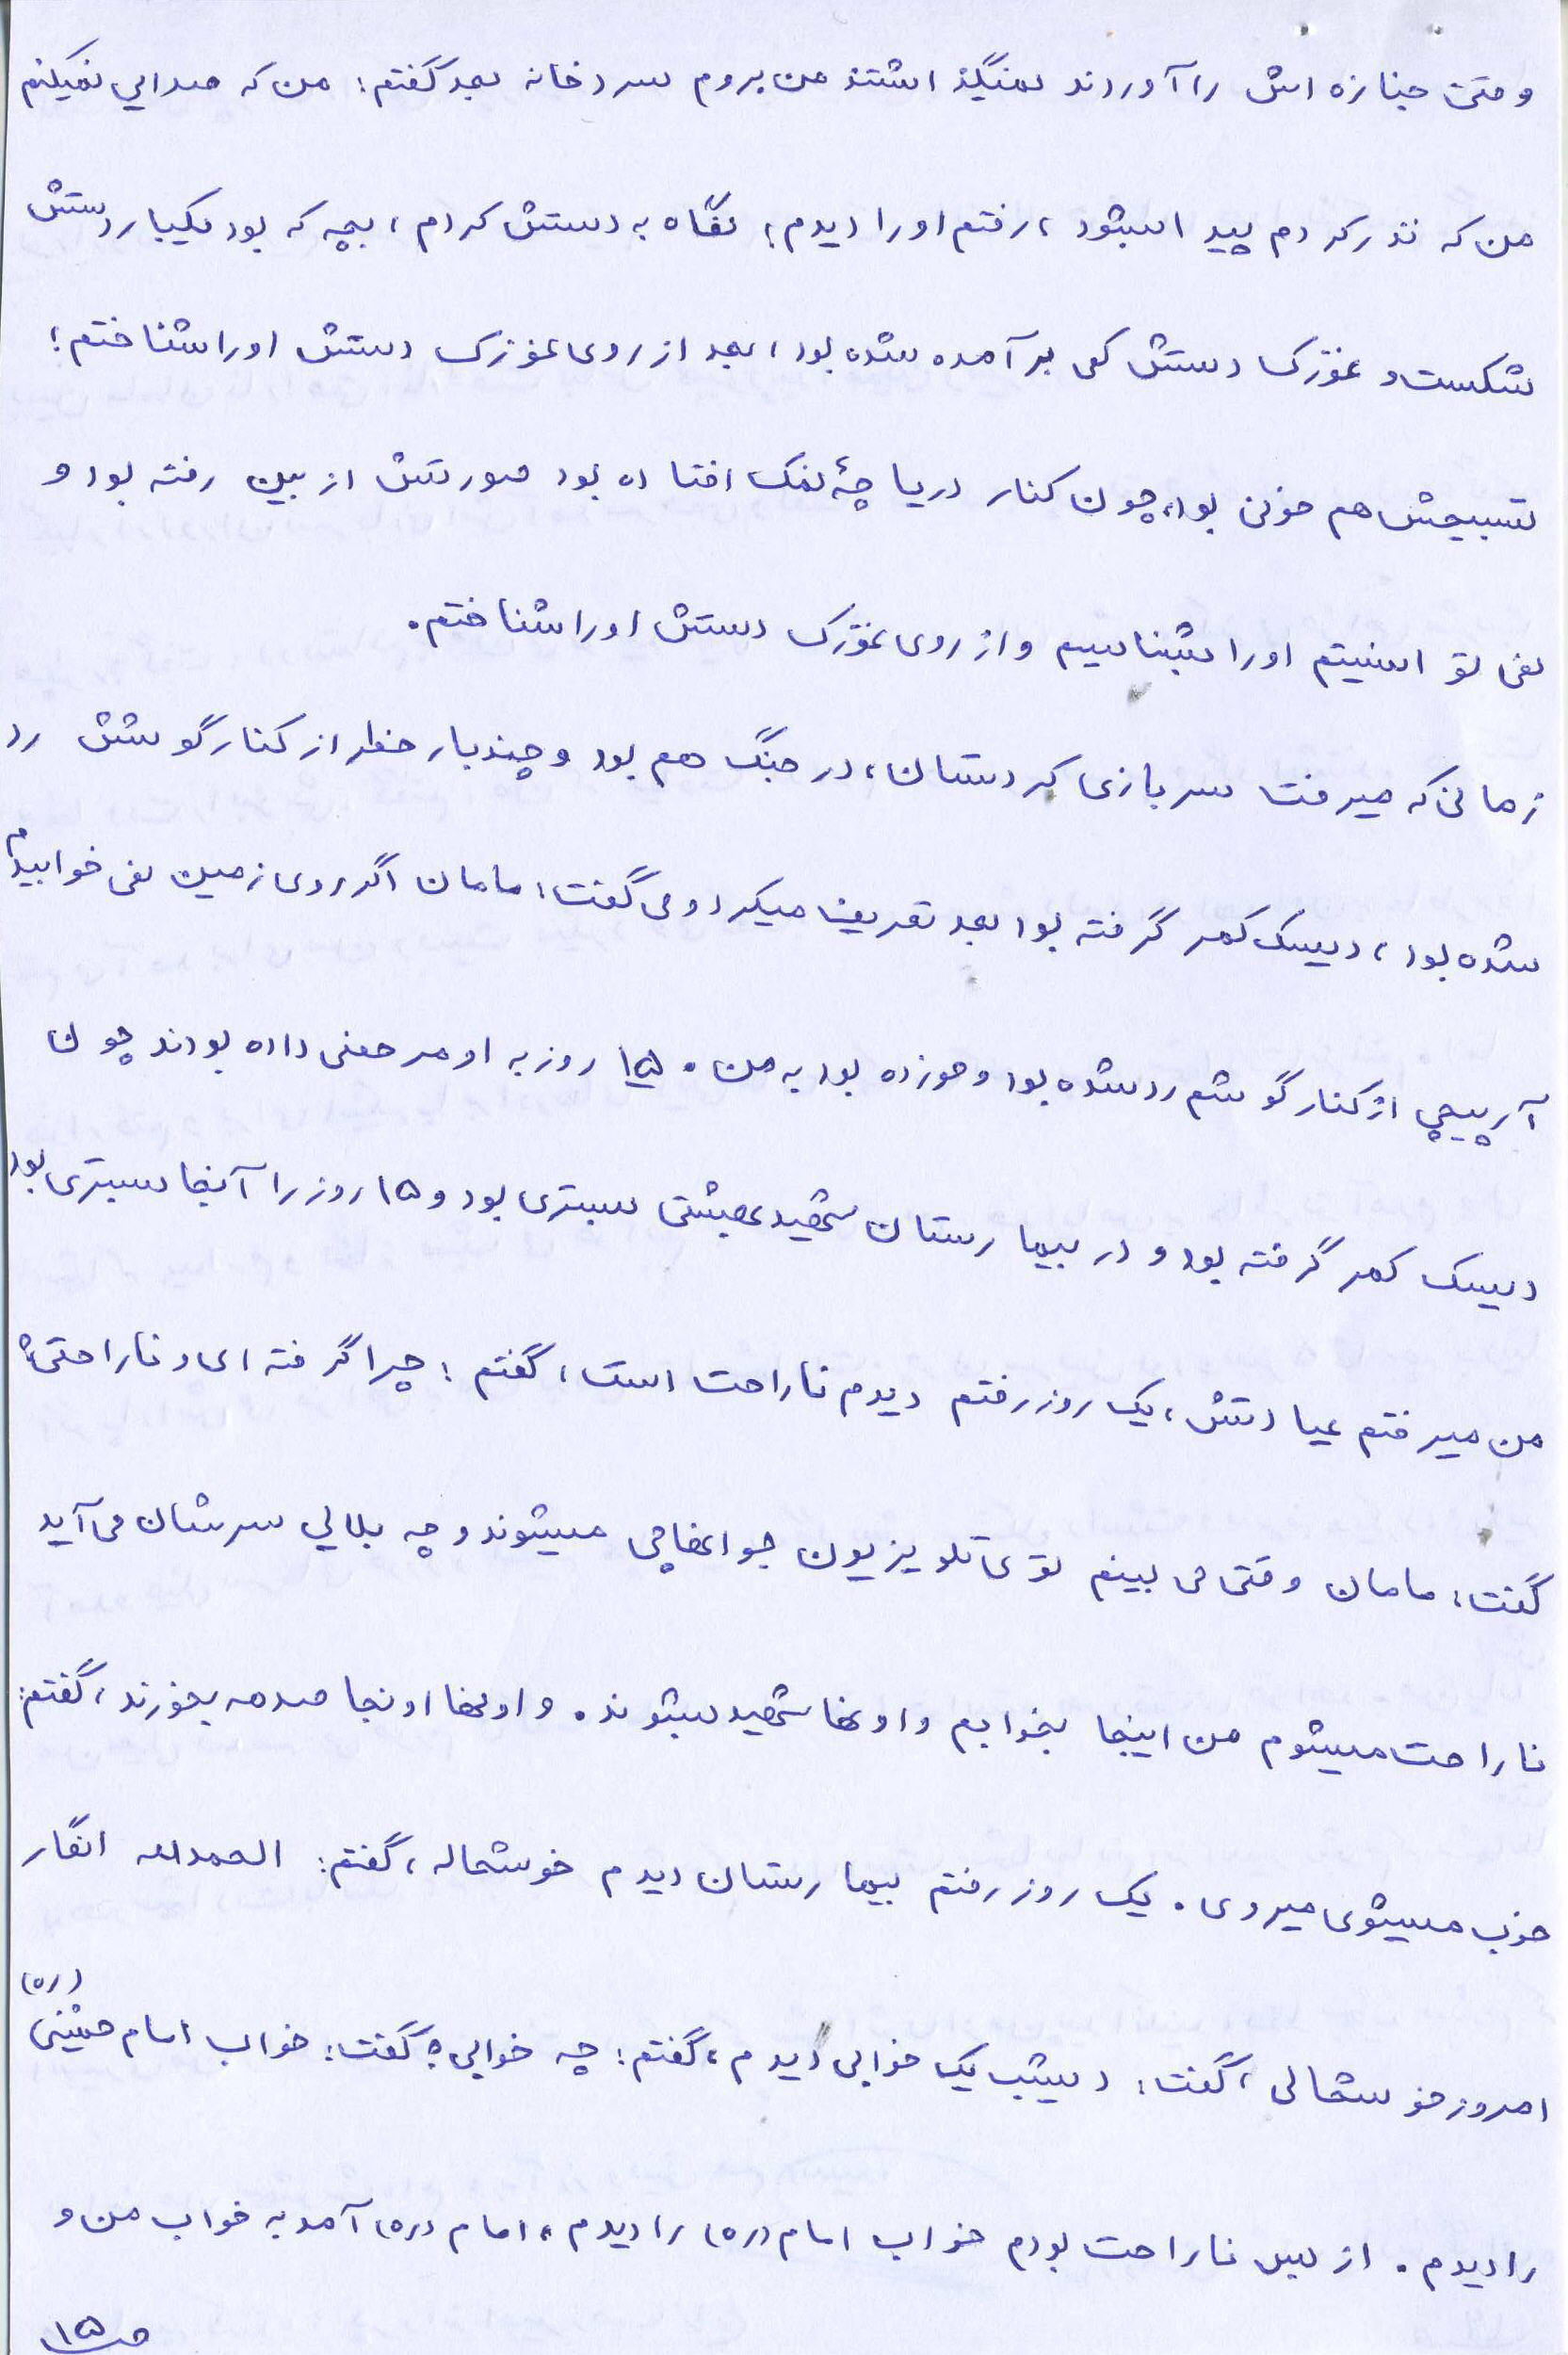 وقتی جنازه اش را آوردند نمیگذاشتند من بروم سردخانه بعد گفتم: من که صدایی نمیکنم
من که نذر کردم پیدا بشود، رفتم او را دیدم؛ نگاه به دستش کردم، بچه که بود یکبار دستش
شکست و غوزک دستش کمی برآمده شده بود، بعد از روی غوزک دستش او را شناختم؛
تسبیحش هم خونی بود، چون کنار دریاچهٔ نمک افتاده بود صورتش از بین رفته بود و
نمی توانستیم او را بشناسیم و از روی غوزک دستش او را شناختم.
زمانی که میرفت سربازی کردستان، در جنگ هم بود و چندبار خطر از کنار گوشش رد
شده بود، دیسک کمر گرفته بود بعد تعریف میکرد و می گفت: مامان اگر روی زمین نمی خوابیدم
آرپیجی از کنار گوشم رد شده بود و خورده بود به من. ۱۵ روز به او مرخصی داده بودند چون
دیسک کمر گرفته بود و در بیمارستان شهید بهشتی بستری بود و ۱۵ روز را آنجا بستری بود
من میرفتم عیادتش، یک روز رفتم دیدم ناراحت است، گفتم: چرا گرفته ای و ناراحتی؟
گفت: مامان وقتی می بینم توی تلویزیون جوانها چی میشوند و چه بلایی سرشان می آید
ناراحت میشوم من اینجا بخوابم و اونها شهید بشوند. و اونها اونجا صدمه بخورند، گفتم:
خوب میشوی میروی. یک روز رفتم بیمارستان دیدم خوشحاله، گفتم: الحمدلله انگار
امروز خوشحالی، گفت: دیشب یک خوابی دیدم، گفتم: چه خوابی؟ گفت: خواب امام خمینی (ره)
را دیدم. از بس ناراحت بودم خواب امام (ره) را دیدم، امام (ره) آمد به خواب من و
ص۱۵